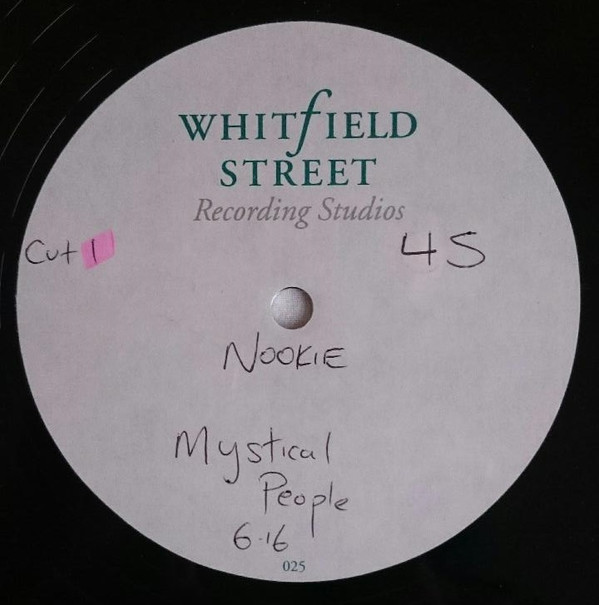 WHITfIELD
STREET
Recording Studios
Cut 1
45
NOOKIE
Mystical
People
6.16
025